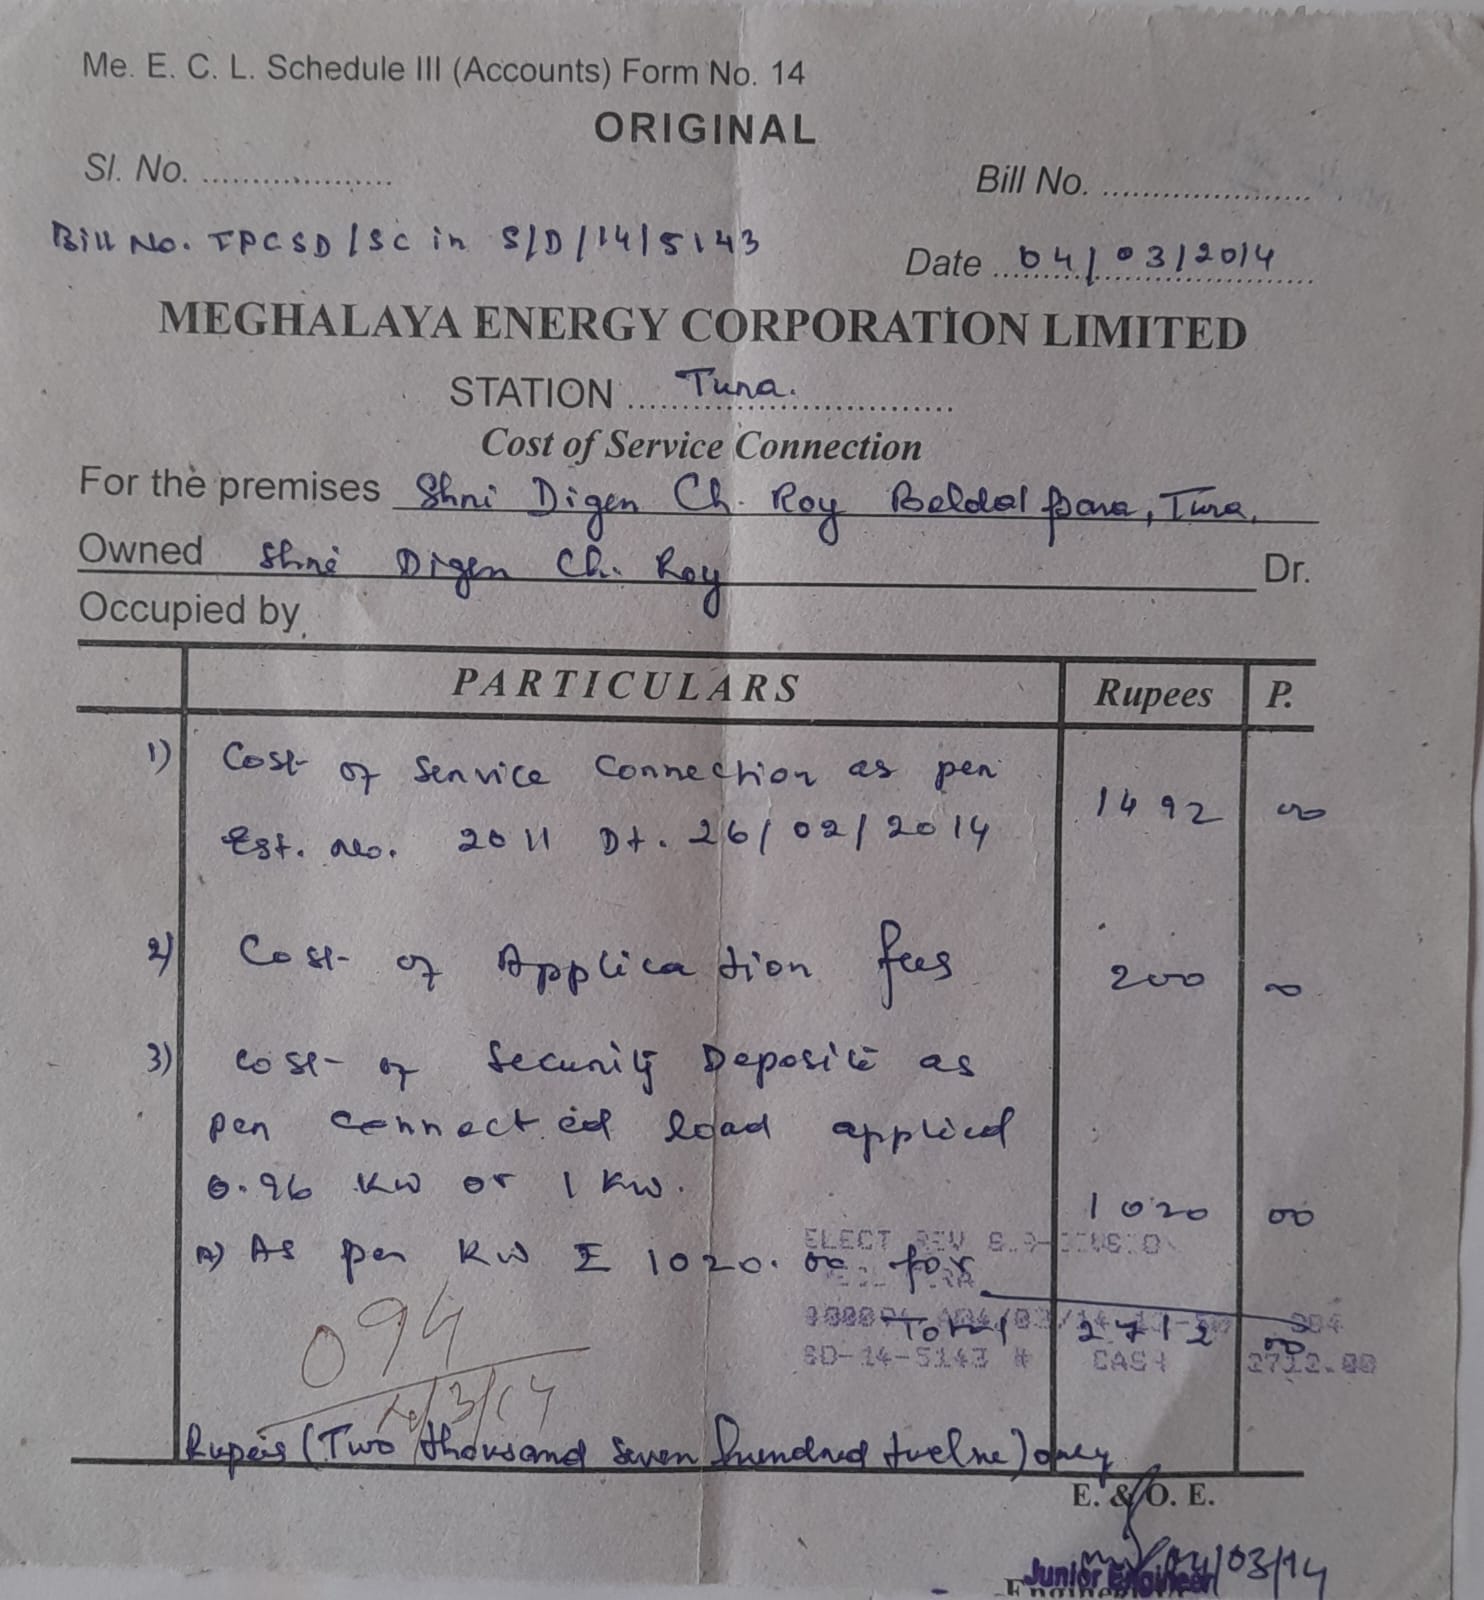 Me. E. C. L. Schedule III (Accounts) Form No. 14
ORIGINAL
Sl. No. ...................
Bill No. ......................
Bill No. TPCSD/SC in S/D/14/5143
Date 04/03/2014
MEGHALAYA ENERGY CORPORATION LIMITED
STATION Tura.
Cost of Service Connection
For the premises Shri Digen Ch. Roy Beldal para, Tura,
Owned Shri Digen Ch. Roy Dr.
Occupied by
PARTICULARS Rupees P.
1) Cost of Service Connection as per
Est. No. 2011 Dt. 26/02/2014 1492 00
2) Cost of Application fees 200 00
3) Cost of Security Deposite as
per connected load applied
0.96 KW or 1 KW. 1020 00
A) As per KW 1020.00 for
ELECT REV
Total 2712 00
SD-14-5143 * CASH 2712.00
094
/3/14
Rupeis (Two thousand seven hundred twelve) only
E. & O. E.
04/03/14
Junior Engineer